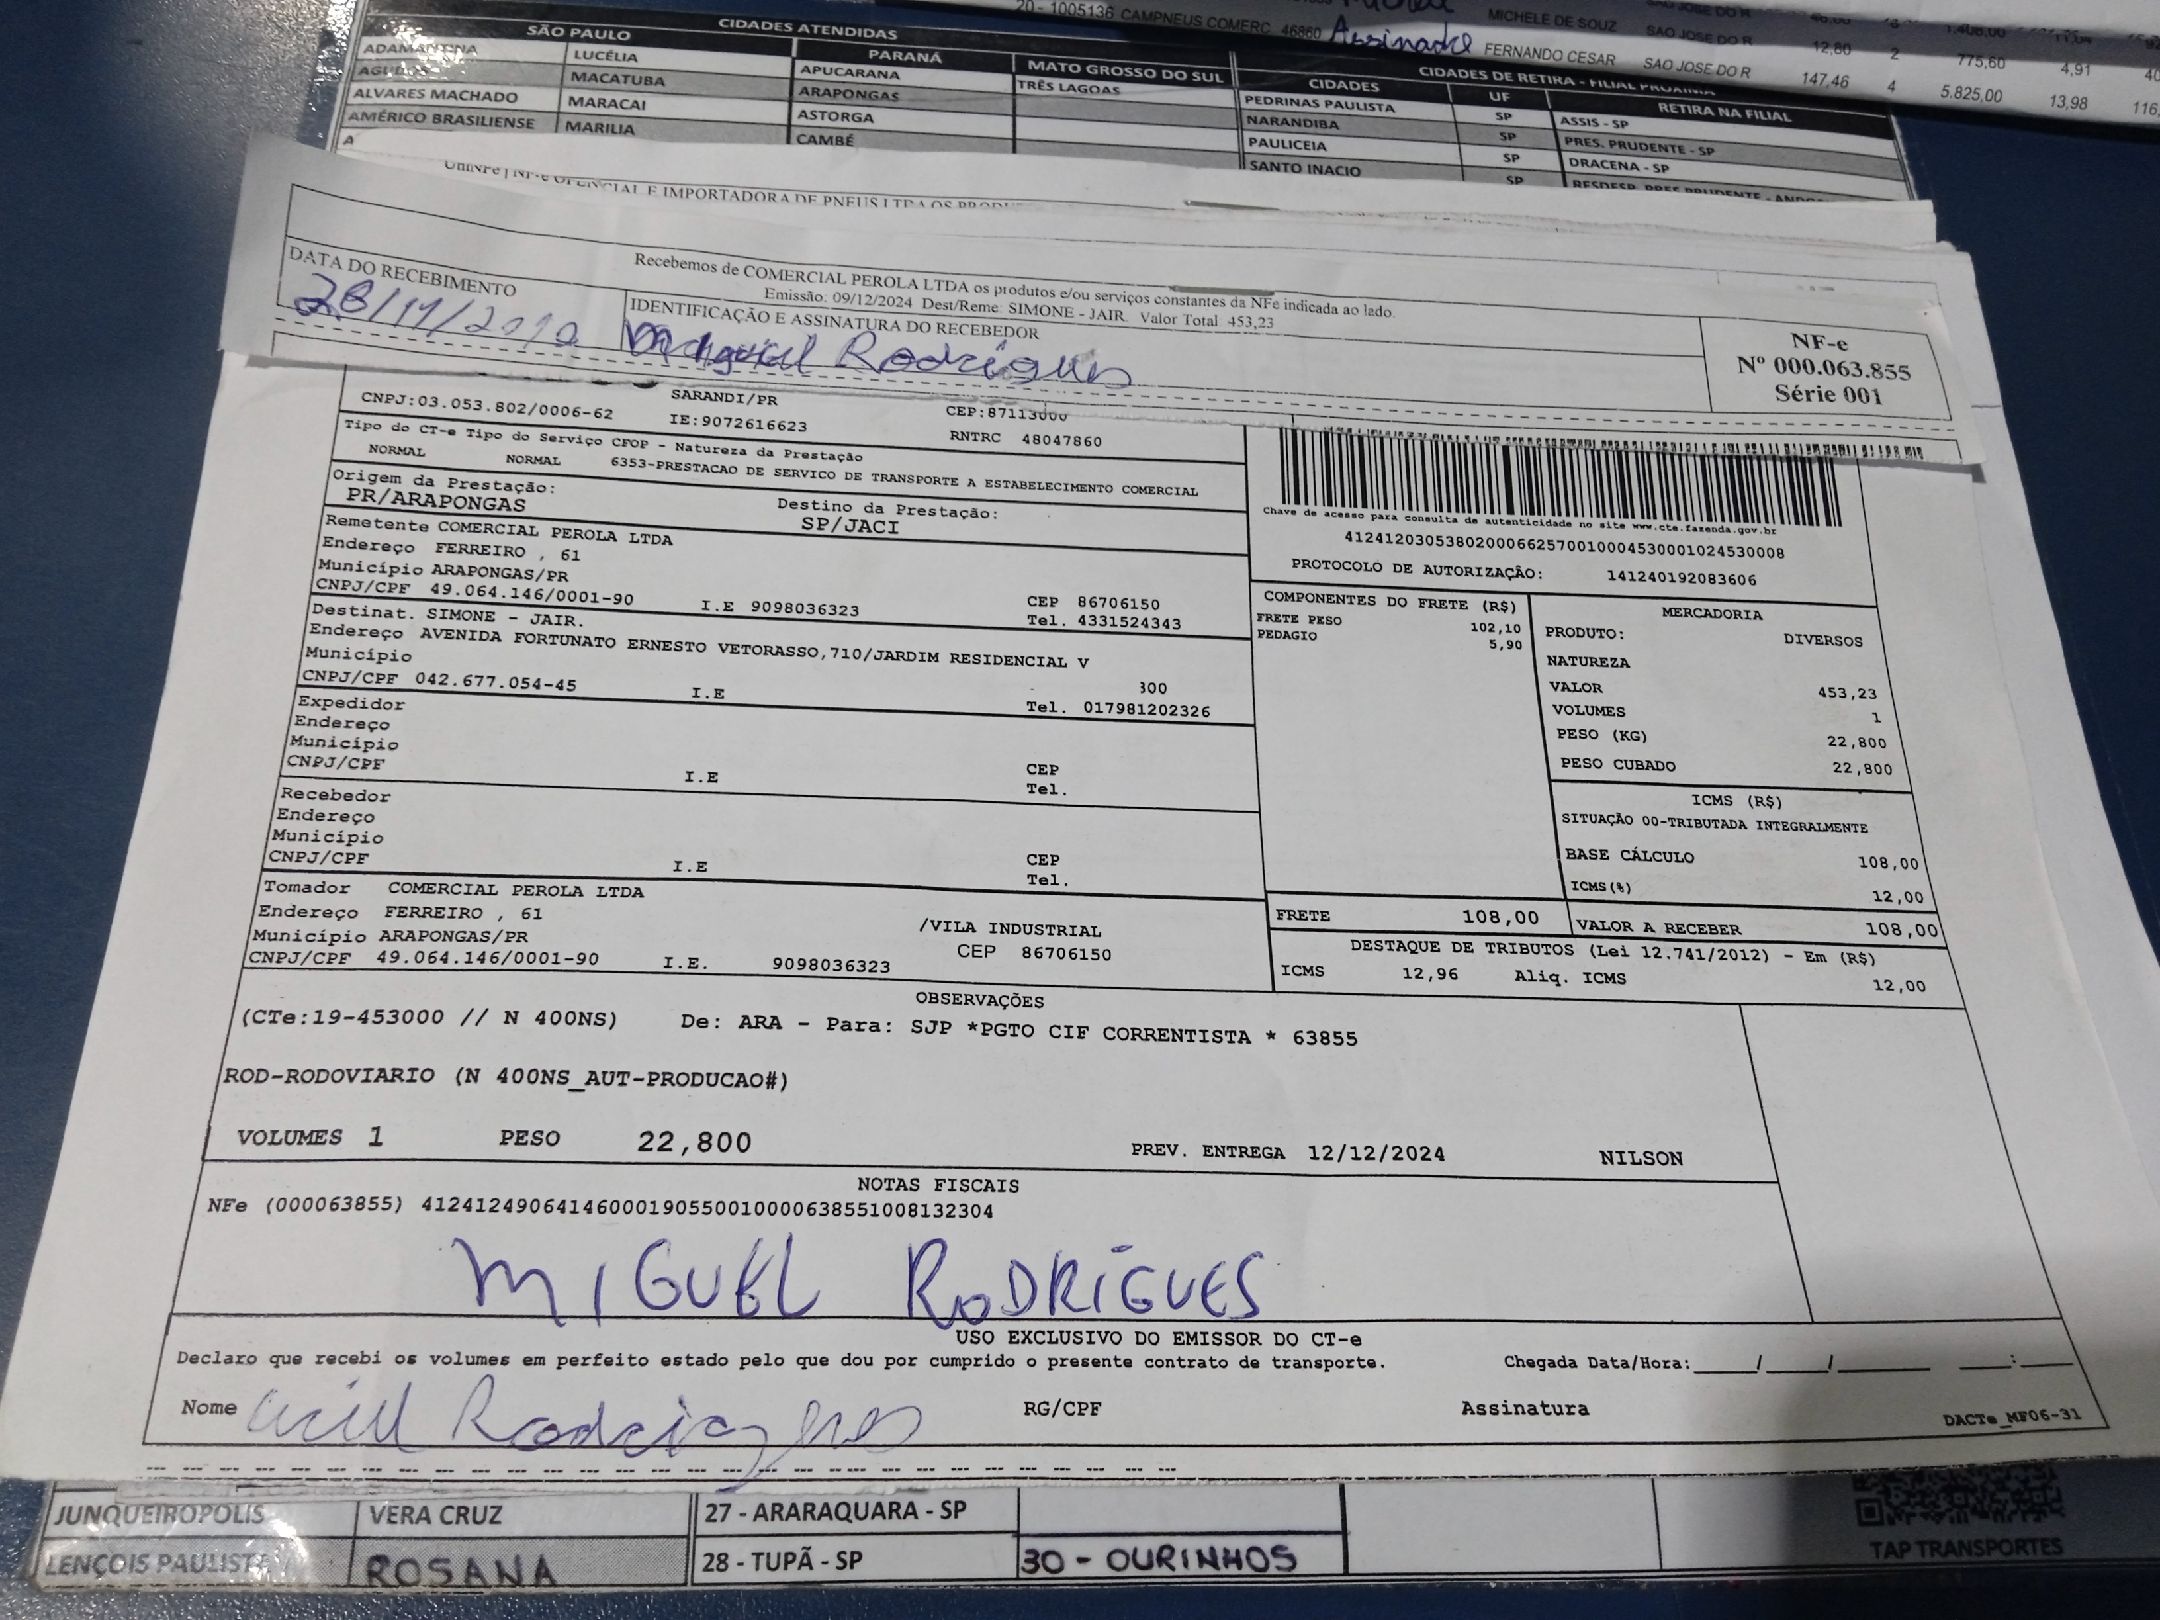 20 - 1005136 CAMPNEUS COMERC 46860 Assinado FERNANDO CESAR SAO JOSE DO R 147,46 4 5.825,00 13,98 116,
MICHELE DE SOUZ SAO JOSE DO R 12,80 2 775,60 4,91 40
CIDADES ATENDIDAS
SÃO PAULO PARANÁ MATO GROSSO DO SUL
ADAMANTINA LUCÉLIA APUCARANA TRÊS LAGOAS
MACATUBA ARAPONGAS
ALVARES MACHADO MARACAI ASTORGA
AMÉRICO BRASILIENSE MARILIA CAMBÉ
CIDADES DE RETIRA - FILIAL PROXIMA
CIDADES UF RETIRA NA FILIAL
PEDRINAS PAULISTA SP ASSIS - SP
NARANDIBA SP PRES. PRUDENTE - SP
PAULICEIA SP DRACENA - SP
SANTO INACIO SP
Recebemos de COMERCIAL PEROLA LTDA os produtos e/ou serviços constantes da NFe indicada ao lado.
Emissão: 09/12/2024 Dest/Reme: SIMONE - JAIR. Valor Total 453,23
DATA DO RECEBIMENTO
IDENTIFICAÇÃO E ASSINATURA DO RECEBEDOR
Rodrigues
NF-e
Nº 000.063.855
Série 001
SARANDI/PR CEP:87113000
CNPJ:03.053.802/0006-62 IE:9072616623 RNTRC 48047860
Tipo do CT-e Tipo do Serviço CFOP - Natureza da Prestação
NORMAL NORMAL 6353-PRESTACAO DE SERVICO DE TRANSPORTE A ESTABELECIMENTO COMERCIAL
Origem da Prestação: Destino da Prestação:
PR/ARAPONGAS SP/JACI
Chave de acesso para consulta de autenticidade no site www.cte.fazenda.gov.br
41241203053802000662570010004530001024530008
PROTOCOLO DE AUTORIZAÇÃO: 141240192083606
Remetente COMERCIAL PEROLA LTDA
Endereço FERREIRO , 61
Município ARAPONGAS/PR CEP 86706150
CNPJ/CPF 49.064.146/0001-90 I.E 9098036323 Tel. 4331524343
Destinat. SIMONE - JAIR.
Endereço AVENIDA FORTUNATO ERNESTO VETORASSO,710/JARDIM RESIDENCIAL V
Município 300
CNPJ/CPF 042.677.054-45 I.E Tel. 017981202326
Expedidor
Endereço
Município CEP
CNPJ/CPF I.E Tel.
Recebedor
Endereço
Município CEP
CNPJ/CPF I.E Tel.
Tomador COMERCIAL PEROLA LTDA
Endereço FERREIRO , 61 /VILA INDUSTRIAL
Município ARAPONGAS/PR CEP 86706150
CNPJ/CPF 49.064.146/0001-90 I.E. 9098036323
COMPONENTES DO FRETE (R$)
FRETE PESO 102,10
PEDAGIO 5,90
MERCADORIA
PRODUTO: DIVERSOS
NATUREZA
VALOR 453,23
VOLUMES 1
PESO (KG) 22,800
PESO CUBADO 22,800
ICMS (R$)
SITUAÇÃO 00-TRIBUTADA INTEGRALMENTE
BASE CÁLCULO 108,00
ICMS(%) 12,00
FRETE 108,00 VALOR A RECEBER 108,00
DESTAQUE DE TRIBUTOS (Lei 12.741/2012) - Em (R$)
ICMS 12,96 Aliq. ICMS 12,00
OBSERVAÇÕES
(CTe:19-453000 // N 400NS) De: ARA - Para: SJP *PGTO CIF CORRENTISTA * 63855
ROD-RODOVIARIO (N 400NS_AUT-PRODUCAO#)
VOLUMES 1 PESO 22,800 PREV. ENTREGA 12/12/2024 NILSON
NOTAS FISCAIS
NFe (000063855) 41241249064146000190550010000638551008132304
MIGUEL RODRIGUES
USO EXCLUSIVO DO EMISSOR DO CT-e
Declaro que recebi os volumes em perfeito estado pelo que dou por cumprido o presente contrato de transporte. Chegada Data/Hora:____/____/______ ___:___
Nome Rodrigues RG/CPF Assinatura DACTe_MF06-31
JUNQUEIROPOLIS VERA CRUZ 27 - ARARAQUARA - SP
LENÇOIS PAULISTA ROSANA 28 - TUPÃ - SP 30 - OURINHOS
TAP TRANSPORTES